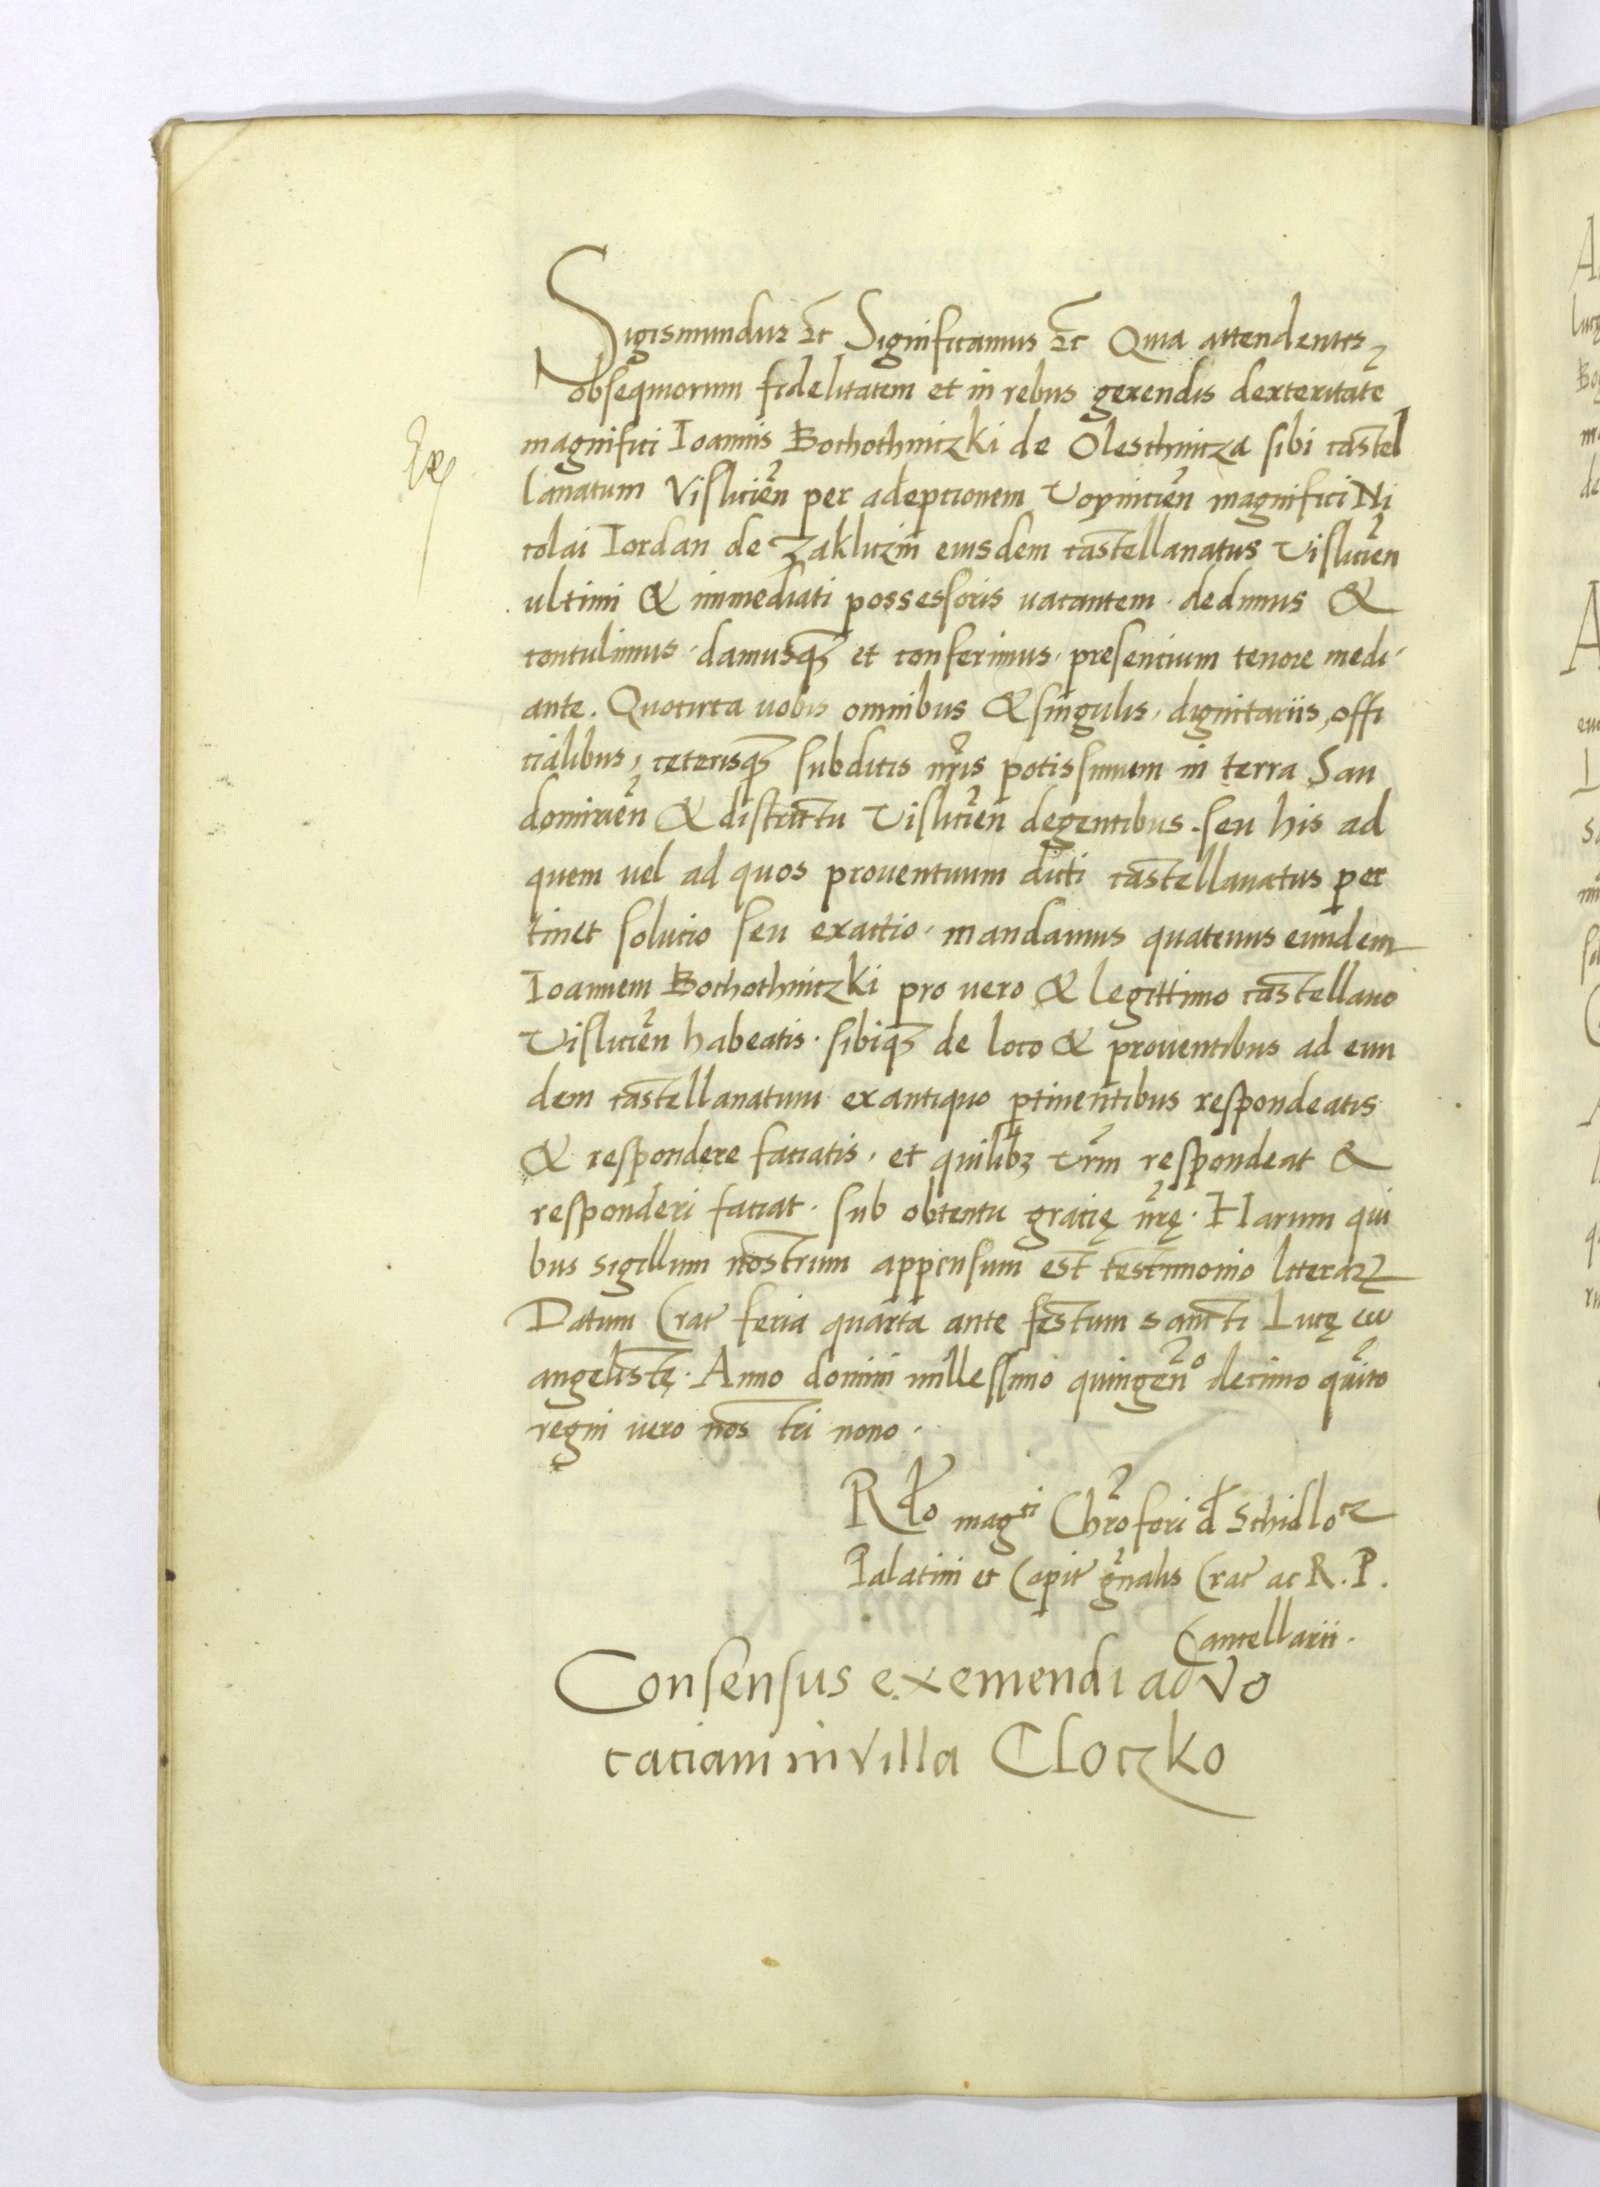 Sigismundus etc Significamus etc Quia attendentes
obsequiorum fidelitatem et in rebus gerendis dexteritatē
magnifici Ioannis Bochothniczki de Oleschnicza sibi castel
Ex
lanatum Vislicień per adeptionem Voynicień magnifici Ni
colai Iordan de Zakliczin eiusdem castellanatus Vislicień
ultimi & immediati possessoris vacantem · dedimus &
contulimus · damusq; et conferimus · presencium tenore medi
ante. Quocirca vobis omnibus & singulis, dignitariis, offi
cialibus, ceterisq; subditis nr̃is potissimum in terra San
domirień & districtu Vislicień degentibus · seu his ad
quem vel ad quos proventuum dicti castellanatus per
tinet solucio seu exactio · mandamus quatenus eundem
Ioannem Bochothniczki pro vero & legittimo castellano
Vislicień habeatis · sibiq; de loco & proventibus ad eun
dem castellanatum ex antiquo ꝑtinentibus respondeatis
& respondere faciatis, et quilibꝫ vr̃m respondeat &
responderi faciat · sub obtentu gracię nr̃ę · Harum qui
bus sigillum nostrum appensum est testimonio literaꝝ
Datum Crac feria quarta ante festum sancti Lucę eu
angelistę · Anno domini millessimo quingeñº decimo quĩto
regni vero nostri nono ·
Rᵈᵒ mag^ci Chr̃oferi d Schidlo^cz
Palatini et Capit gñalis Crac ac R. P.
Cancellarii ·
Consensus exemendi advo
caciam in villa Cloczko